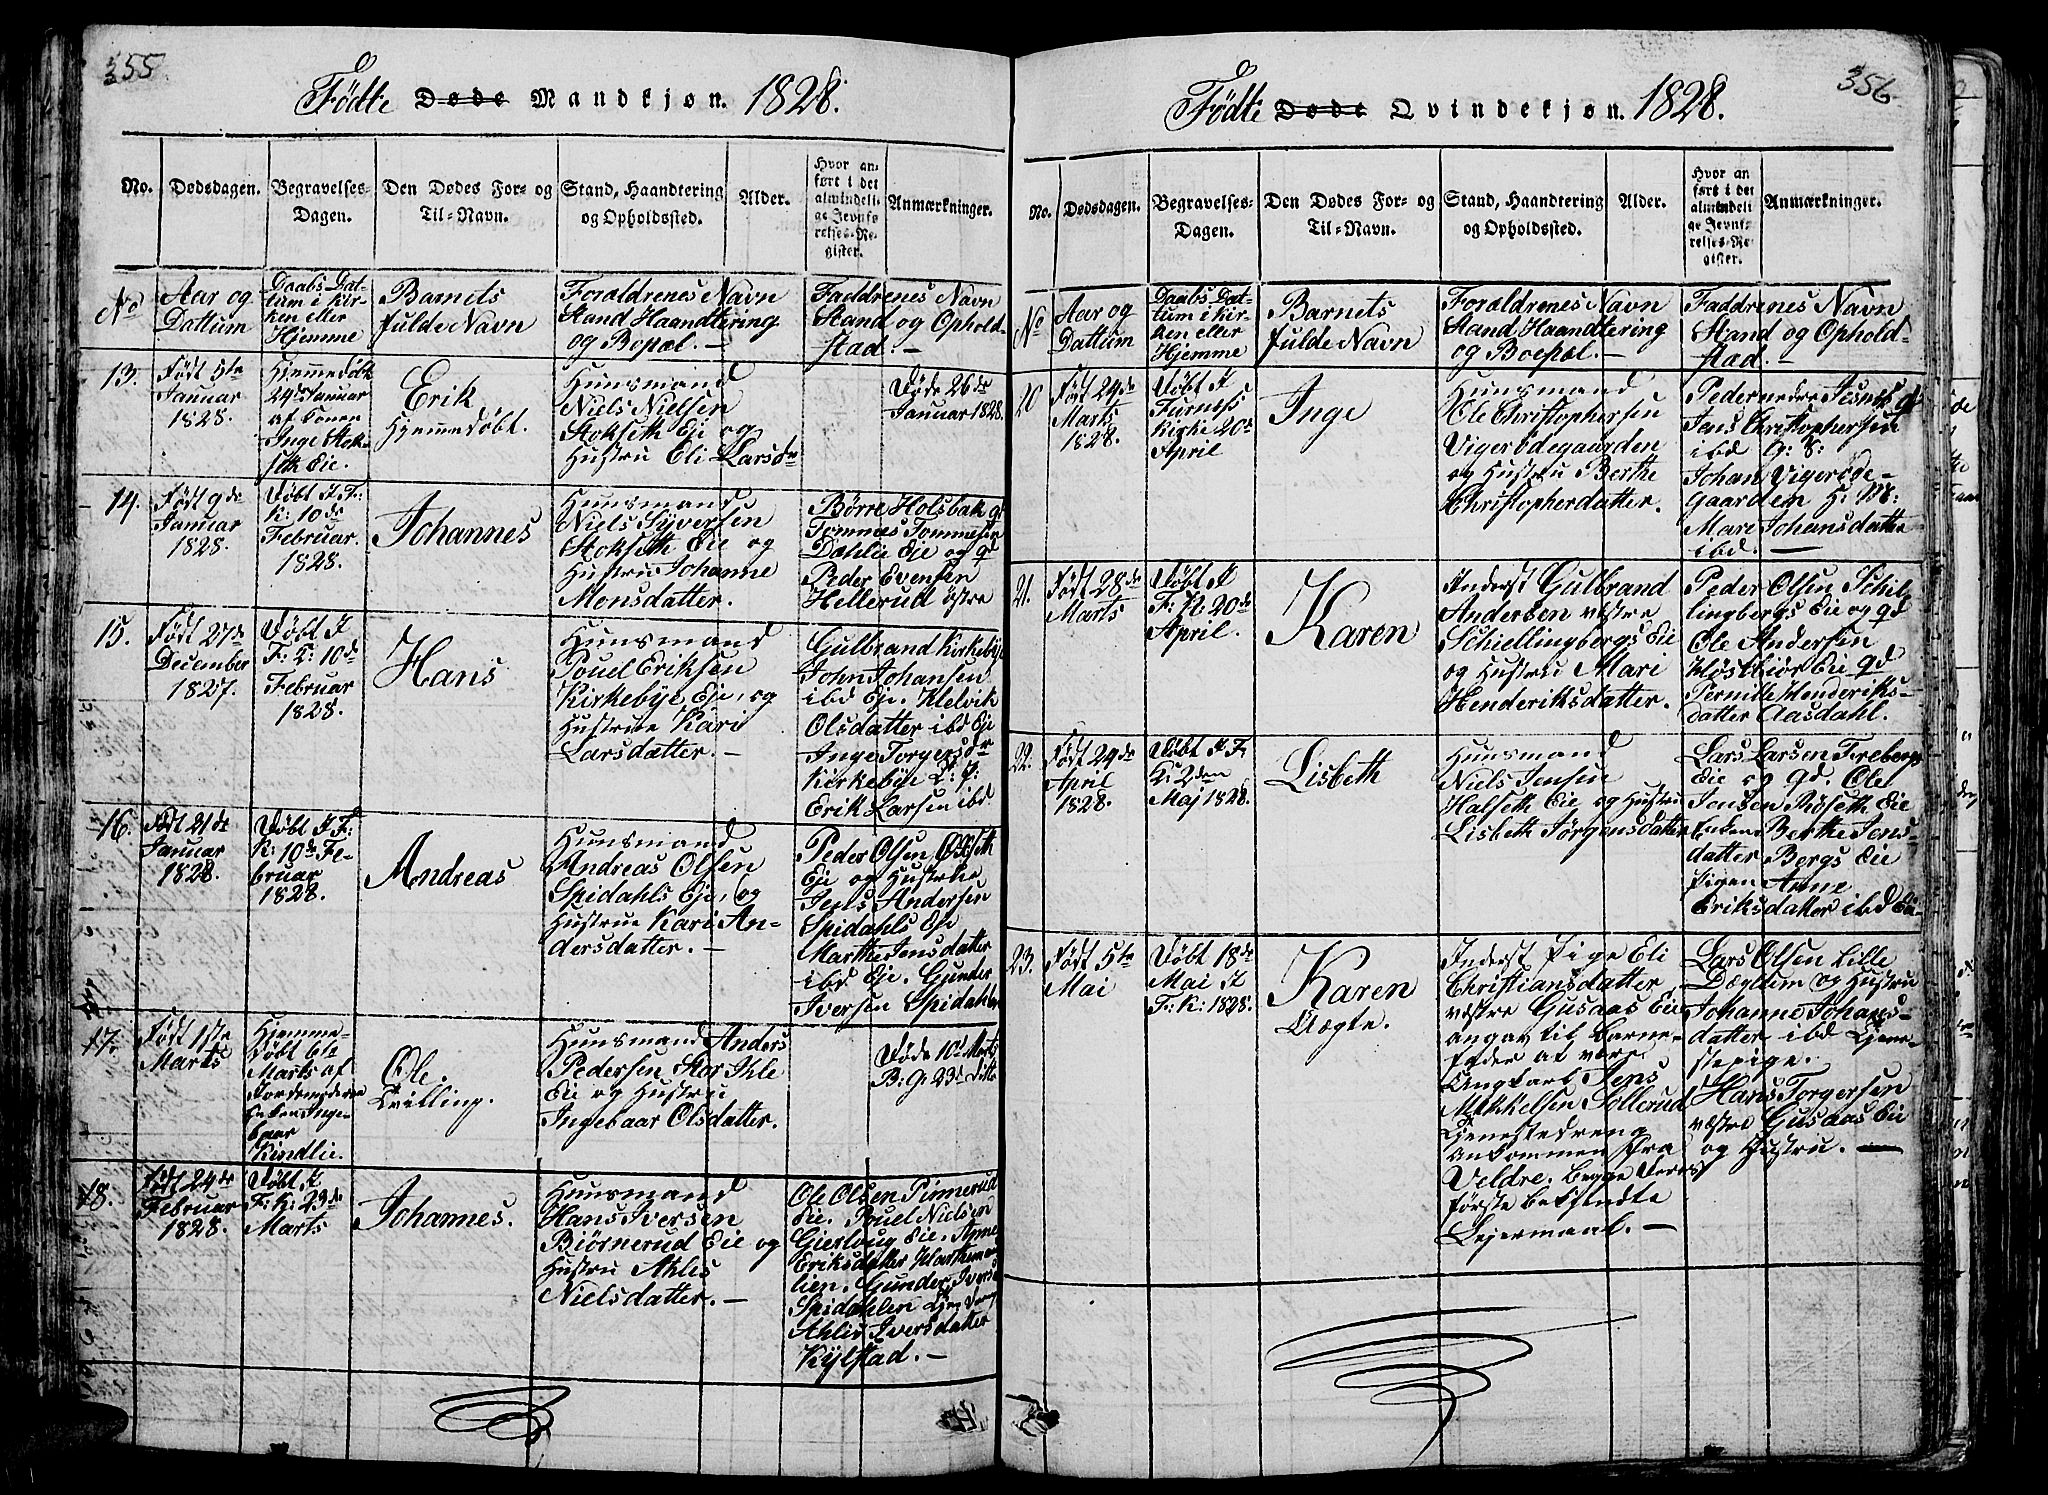 355
Fødte Døde Mandkjøn. 1828.
No. Dødsdagen. Begravelses-Dagen. Den Dødes For- og Til-Navn. Stand, Haandtering og Opholdssted. Alder. Hvor anført i det almindelige Jevnførelses-Register. Anmærkninger.
No
Aar og
Dattum
Daabs Dat-
tum i Kir-
ken eller
Hjemme
Barnets
fulde Navn
Forældrenes Navn
Stand Haandtering
og Bopæl. -
Faddrenes Navn
Stand og Ophold-
stad. -
13.
Født 5te
Januar
1828.
Hiemmedøbt
24de Januar
af Konen
Inge Stok-
seth Eie.
Erik
Hjemmedøbt.
Huusmand
Niels Nielsen
Stokseth Eie og
Hustru Eli Larsdr
Døde 26de
Januar 1828.
14.
Født 9de
Januar
1828.
Døbt I F:
K: 10de
Februar.
1828.
Johannes
Huusmand
Niels Syversen
Stokseth Eie og
Hustru Johanne
Monsdatter.
Børre Holsbak gd
Tommes Tommesen
Dæhlie Eie og gd
Peder Evensen
Hellerud østre
15.
Født 27de
December
1827.
Døbt I
F: K: 10de
Februar
1828.
Hans
Huusmand
Pouel Eriksen
Kirkebye Eje, og
Hustrue Kari
Larsdatter. -
Gulbrand Kirkebye
John Johansen
ibd Eje. Kleivik
Olsdatter ibd Eje
Inge Torgersdr
Kirkebye L: P:
Erik Larsen ibd
16.
Født 21de
Januar
1828.
Døbt I F:
K: 10de Fe-
bruar
1828.
Andreas
Huusmand
Andreas Olsen
Spidahls Eje, og
Hustrue Kari An-
dersdatter. -
Peder Olsen
Eje og Hustrue
Jens Andersen
Spidahls Eje
Marthe Jensdatter
ibd Eje. Gunder
Iversen Spidahlen
17.
Født 1ste
Marts
Hjemme-
døbt 6te
Marts af
Jordemoderen
Enken Inge-
baar
Kindlie.
Ole.
Tvilling.
Huusmand Anders
Pedersen Stor Ihle
Eie og Hustru
Ingebaar Olsdatter.
Døde 10de Marts
B: G: 23de Ditto
18.
Født 24de
Februar
1828.
Døbt I
F: K: 23de
Marts
Johannes.
Huusmand
Hans Iversen
Biørnerud Eie og
Hustru Ahles
Nielsdatter. -
Ole Olsen Pinnerud
Eie. Pouel Nielsen
Gierloug Eie. Anne
Eriksdatter
lien. Gunder Ivers
Spidahlen Tjen
Ahlis Iversdatter
Kylstad. -
356
Fødte Døde Qvindekjøn. 1828.
No. Dødsdagen. Begravelses-Dagen. Den Dødes For- og Til-Navn. Stand, Haandtering og Opholdssted. Alder. Hvor anført i det almindelige Jevnførelses-Register. Anmærkninger.
No
Aar og
Dattum
Daabs Dat-
tum i Kir-
ken eller
Hjemme
Barnets
fulde Navn
Forældrenes Navn
Stand Haandtering
og Boepæl. -
Faddrenes Navn
Stand og Ophold-
stad. -
20
Født 24de
Marts
1828.
Døbt I
Furness
Kirke 20de
April
Inge
Huusmand
Ole Christophersen
Vigerødegaarden
og Hustru Berthe
Christopherdatter.
Peder nedre Jesnes gd
Jens Christophersen
ibd G: S:
Johan Vigerøde-
gaarden H: M:
Mari Johansdatter
ibd. -
21.
Født 28de
Marts
Døbt I
F: K: 20de
April.
Karen
Inderst Gulbrand
Andersen væstre
Schiellingbergs Eie
og Hustru Mari
Henderiksdatter.
Peder Olsen Schil-
lingbergs Eie og gd
Ole Andersen
Eie gd
Pernille Henderiks-
datter Aasdahl.
22.
Født 29de
April
1828.
Døbt I F:
K: 2den
Maj 1828.
Lisbeth
Huusmand
Niels Jensen
Halseth Eie og Hustru
Lisbeth Jørgensdatter
Lars Larsen Freberg
Eie og gd. Ole
Jensen Roseth Eie
Enken Berthe Jens-
datter Bergs Eie
Pigen Anne
Eriksdatter ibd Ei-
23.
Født 5te
Mai
Døbt 18de
Mai I
F: K: 1828.
Karen
Uægte.
Inderst Pige Eli
Christiansdatter
væstre Gusaas Eie
angav til Barne-
fader at være
Ungkarl Jens
Mikkelsen Sollerud
Tjenestedreng
ankommen fra
Veldre. begge Deres
første bekjendte
Lejermaal. -
Lars Olsen Lille
Dægdum og Hustru
Johanne Johans-
datter ibd Tjene-
stepige.
Hans Torgersen
væstre Gusaas Eie
og Hustru. -